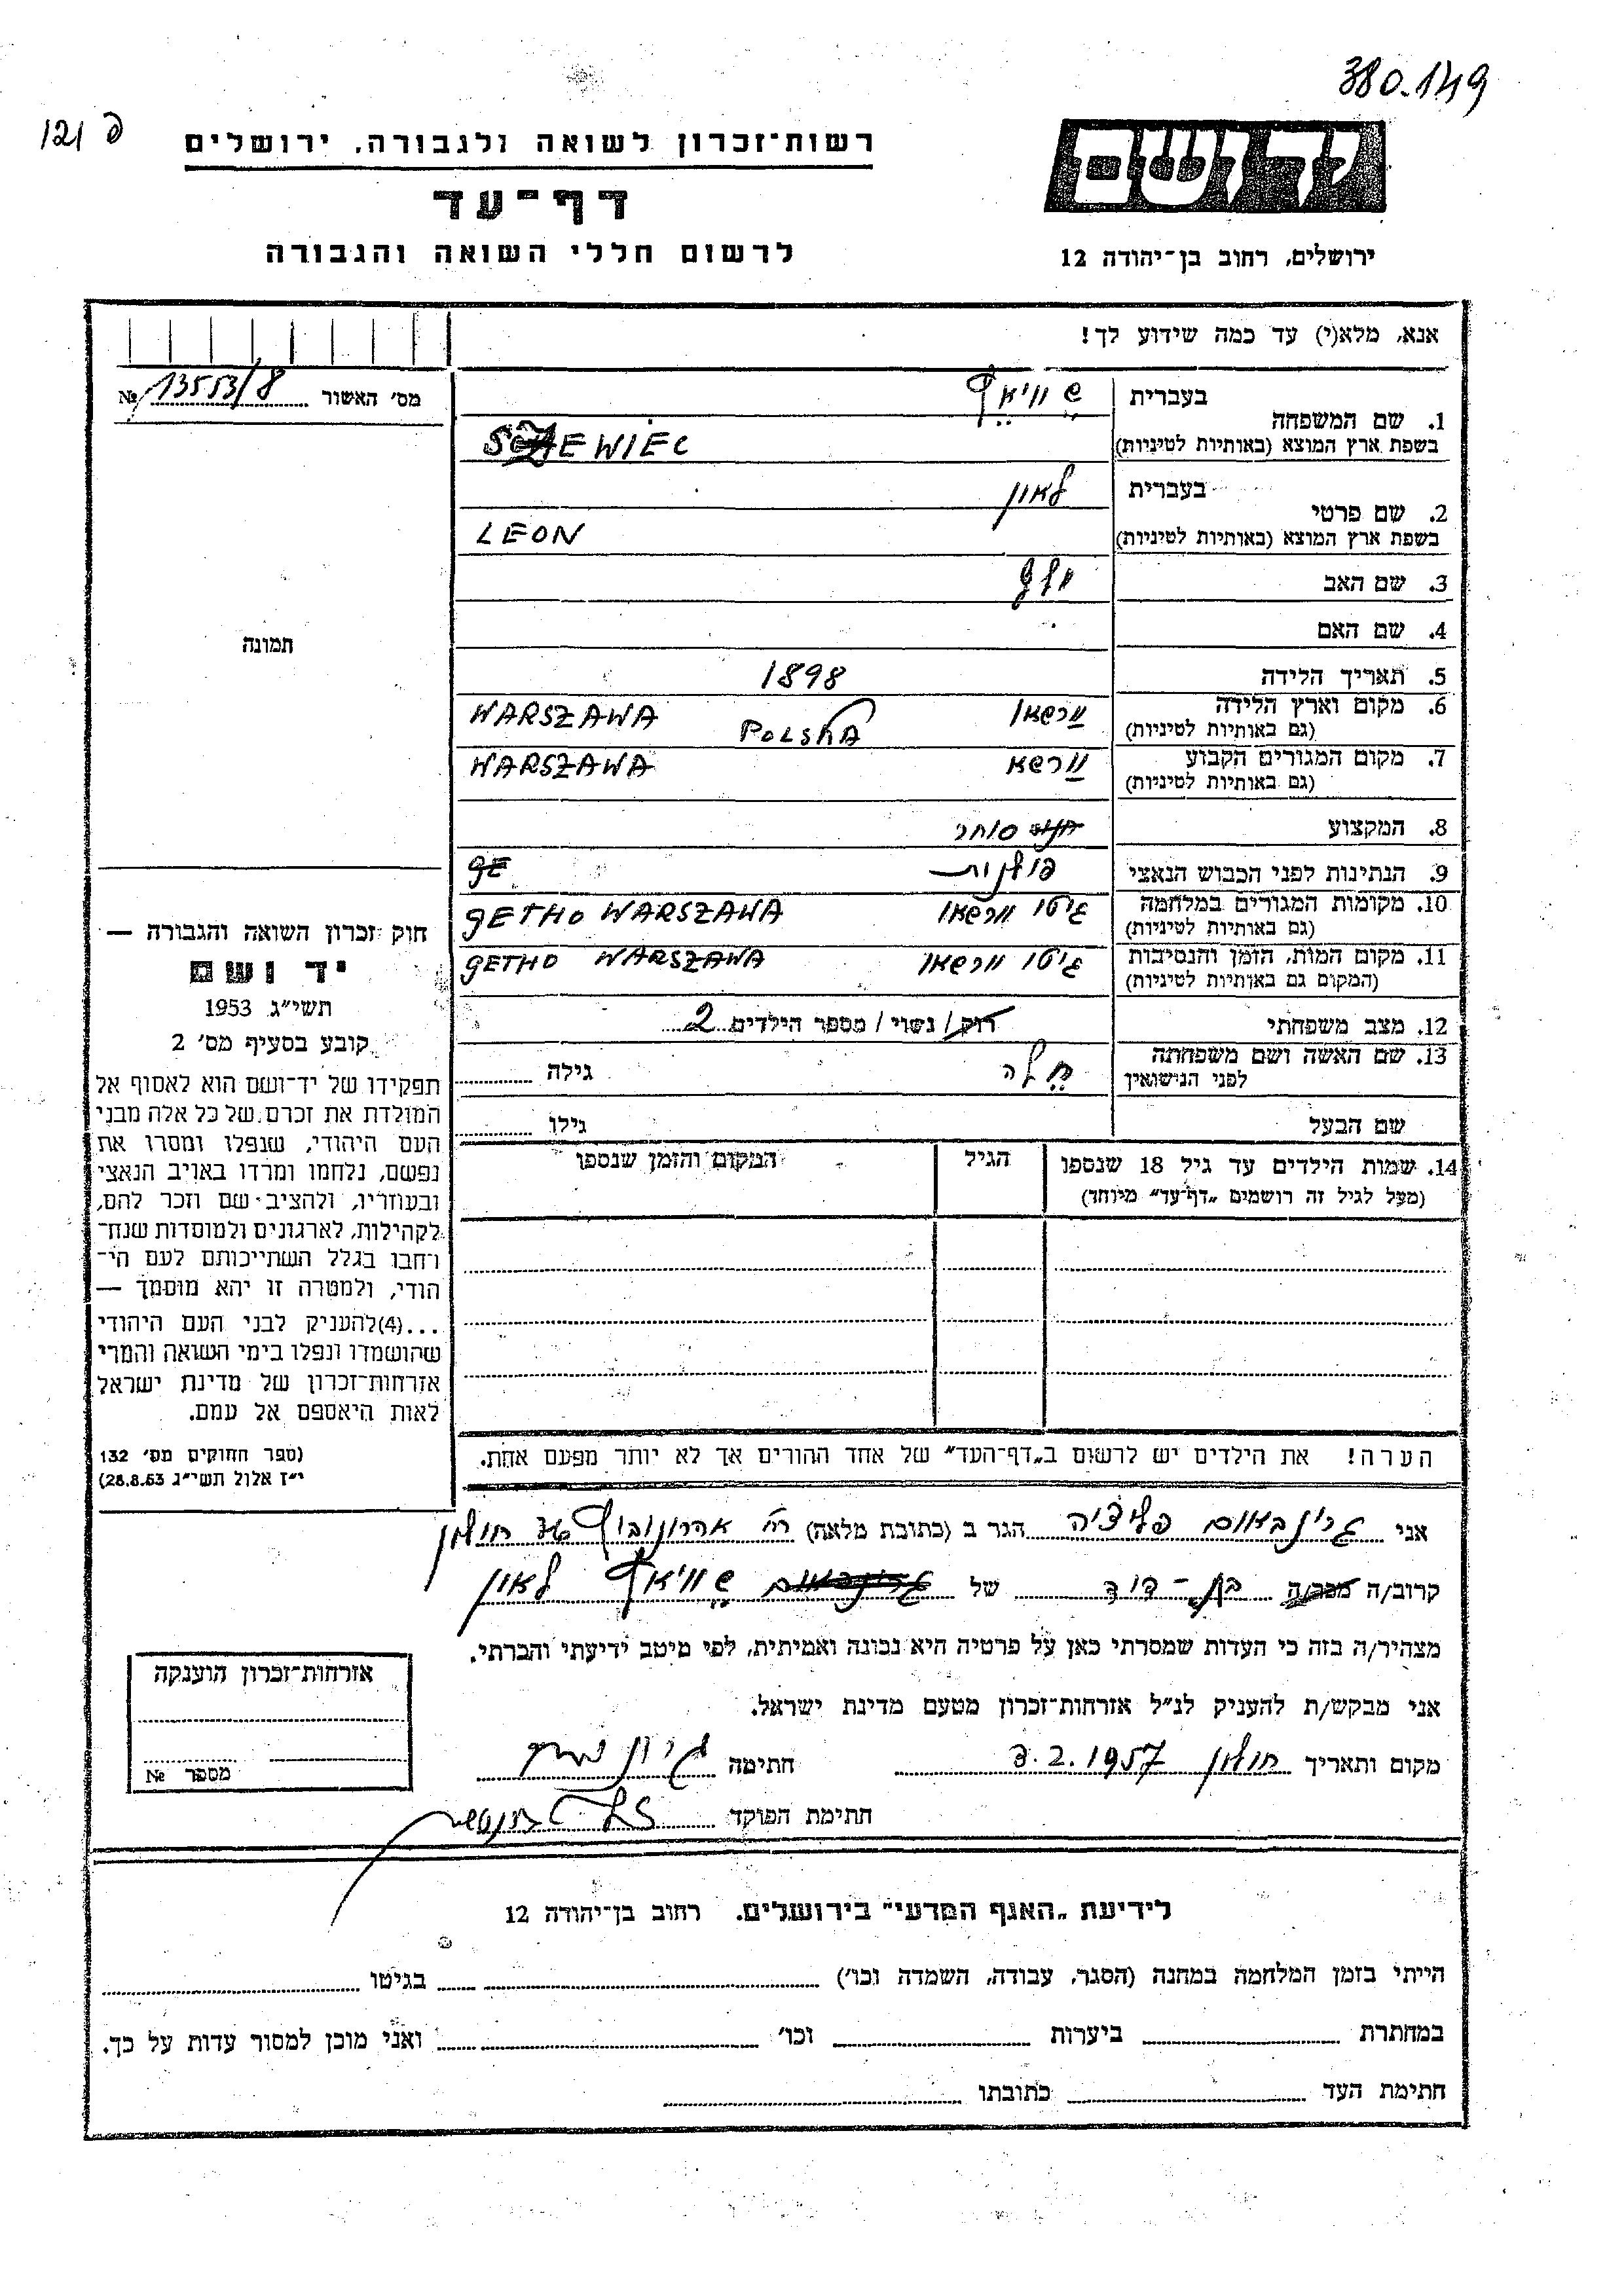 380.149
121 פ
רשות־זכרון לשואה ולגבורה, ירושלים
יד ושם
דף־עד
לרשום חללי השואה והגבורה
ירושלים, רחוב בן־יהודה 12
אנא, מלא(י) עד כמה שידוע לך!
מס׳ האשור 13553/8 №
1. שם המשפחה
בעברית
בשפת ארץ המוצא (באותיות לטיניות)
EWIEC
2. שם פרטי
בעברית לאון
בשפת ארץ המוצא (באותיות לטיניות) LEON
3. שם האב
4. שם האם
תמונה
5. תאריך הלידה 1898
6. מקום וארץ הלידה (גם באותיות לטיניות) WARSZAWA POLSKA
7. מקום המגורים הקבוע (גם באותיות לטיניות) וורשא WARSZAWA
8. המקצוע סוחר
9. הנתינות לפני הכבוש הנאצי פולנית GE
10. מקומות המגורים במלחמה (גם באותיות לטיניות) גיטו וורשאו GETHO WARSZAWA
11. מקום המות, הזמן והנסיבות (המקום גם באותיות לטיניות) גיטו וורשאו GETHO WARSZAWA
12. מצב משפחתי רוק / נשוי / מספר הילדים 2
13. שם האשה ושם משפחתה לפני הנישואין חלה גילה
שם הבעל גילו
14. שמות הילדים עד גיל 18 שנספו (מעל לגיל זה רושמים „דף־עד״ מיוחד)
הגיל
המקום והזמן שנספו
הערה! את הילדים יש לרשום ב„דף־העד״ של אחד ההורים אך לא יותר מפעם אחת.
חוק זכרון השואה והגבורה —
יד ושם
תשי״ג 1953
קובע בסעיף מס׳ 2
תפקידו של יד־ושם הוא לאסוף אל
המולדת את זכרם של כל אלה מבני
העם היהודי, שנפלו ומסרו את
נפשם, נלחמו ומרדו באויב הנאצי
ובעוזריו, ולהציב שם וזכר להם,
לקהילות, לארגונים ולמוסדות שנח־
רחבו בגלל השתייכותם לעם הי־
הודי, ולמטרה זו יהא מוסמך —
...(4) להעניק לבני העם היהודי
שהושמדו ונפלו בימי השואה והמרי
אזרחות־זכרון של מדינת ישראל
לאות היאספם אל עמם.
(ספר החוקים מס׳ 132
י״ז אלול תשי״ג 28.8.53)
אני גרינבאום פליציה הגר ב (כתובת מלאה) חולון
קרוב/ה מכר/ה בת־דוד של לאון
מצהיר/ה בזה כי העדות שמסרתי כאן על פרטיה היא נכונה ואמיתית, לפי מיטב ידיעתי והכרתי.
אני מבקש/ת להעניק לנ״ל אזרחות־זכרון מטעם מדינת ישראל.
מקום ותאריך חולון 3.2.1957 חתימה
חתימת הפוקד
אזרחות־זכרון הוענקה
מספר №
לידיעת „האגף המדעי״ בירושלים. רחוב בן־יהודה 12
הייתי בזמן המלחמה במחנה (הסגר, עבודה, השמדה וכו׳) בגיטו
במחתרת ביערות וכו׳ ואני מוכן למסור עדות על כך.
חתימת העד כתובתו